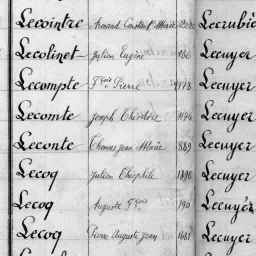 Lecointre Armand Constant Marie Lecrubie
Lecolinet Julien Eugène Lecuyer
Lecompte Fçois Pierre 1178 Lecuyer
Lecomte Joseph Théodore Lecuyer
Leconte Thomas Jean Marie 889 Lecuyer
Lecoq Julien Théophile 1898 Lecuyer
Lecoq Auguste Fçois 190 Lecuyer
Lecoq Pierre Auguste Jean 1681 Lecuyer